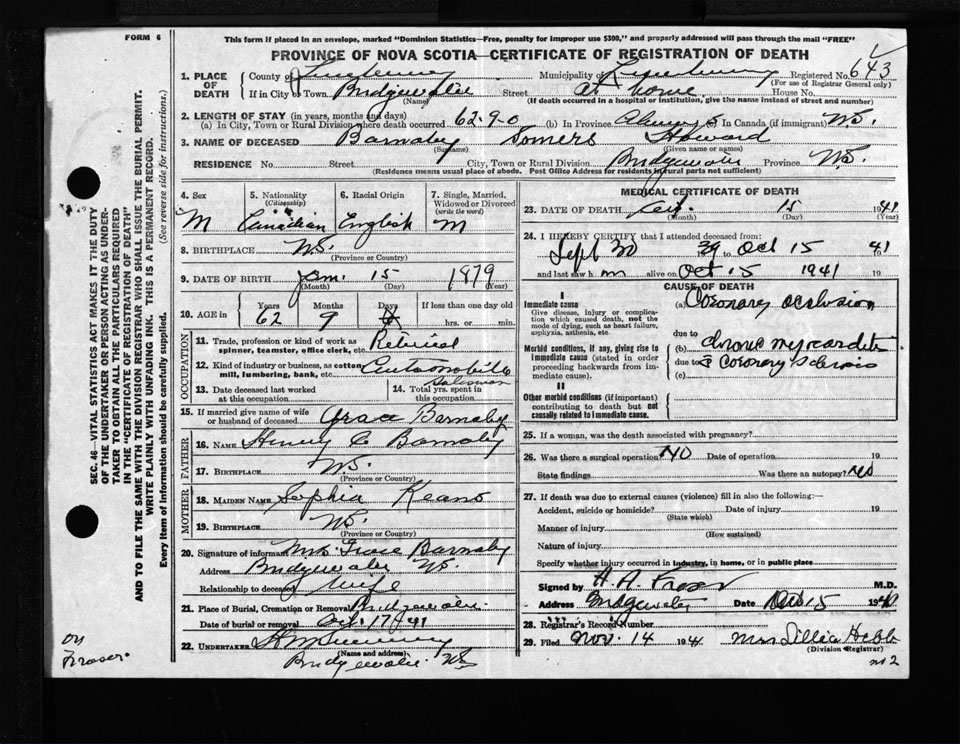 FORM 6
This form if placed in an envelope, marked "Dominion Statistics—Free, penalty for improper use $300," and properly addressed will pass through the mail "FREE"
PROVINCE OF NOVA SCOTIA—CERTIFICATE OF REGISTRATION OF DEATH
1. PLACE OF DEATH County of Lunenburg Municipality of Lunenburg Registered No. 643
(For use of Registrar General only)
If in City or Town Bridgewater Street at home House No.
(Name) (If death occurred in a hospital or institution, give the name instead of street and number)
2. LENGTH OF STAY (in years, months and days)
(a) In City, Town or Rural Division where death occurred 62-9-0 (b) In Province Always (c) In Canada (if immigrant) N.S.
3. NAME OF DECEASED Barnaby Somers Howard
(Surname) (Given name or names)
RESIDENCE No. Street City, Town or Rural Division Bridgewater Province N.S.
(Residence means usual place of abode. Post Office Address for residents in rural parts not sufficient)
4. Sex 5. Nationality (Citizenship) 6. Racial Origin 7. Single, Married, Widowed or Divorced (write the word)
M Canadian English M
8. BIRTHPLACE N.S.
(Province or Country)
9. DATE OF BIRTH Jan. 15 1879
(Month) (Day) (Year)
10. AGE in Years Months Days If less than one day old
62 9 hrs. or min.
OCCUPATION
11. Trade, profession or kind of work as spinner, teamster, office clerk, etc. Retired
12. Kind of industry or business, as cotton mill, lumbering, bank, etc. Automobile Salesman
13. Date deceased last worked at this occupation
14. Total yrs. spent in this occupation
15. If married give name of wife or husband of deceased Grace Barnaby
FATHER
16. NAME Henry C Barnaby
17. BIRTHPLACE N.S.
(Province or Country)
MOTHER
18. MAIDEN NAME Sophia Keans
19. BIRTHPLACE N.S.
(Province or Country)
20. Signature of informant Mrs Grace Barnaby
Address Bridgewater N.S.
Relationship to deceased Wife
21. Place of Burial, Cremation or Removal Bridgewater
Date of burial or removal Oct. 17/41
22. UNDERTAKER
(Name and address)
Bridgewater N.S.
MEDICAL CERTIFICATE OF DEATH
23. DATE OF DEATH 15 1941
(Month) (Day) (Year)
24. I HEREBY CERTIFY that I attended deceased from:
Sept 30 39 to Oct 15 41
and last saw h m alive on Oct 15 1941 19
CAUSE OF DEATH
I
Immediate cause (a) Coronary occlusion
Give disease, injury or complication which caused death, not the mode of dying, such as heart failure, asphyxia, asthenia, etc.
due to
Morbid conditions, if any, giving rise to immediate cause (stated in order proceeding backwards from immediate cause).
(b) chronic myocarditis
due to coronary sclerosis
(c)
II
Other morbid conditions (if important) contributing to death but not causally related to immediate cause.
25. If a woman, was the death associated with pregnancy?
26. Was there a surgical operation? NO Date of operation 19
State findings Was there an autopsy? NO
27. If death was due to external causes (violence) fill in also the following:—
Accident, suicide or homicide? Date of injury 19
(State which)
Manner of injury
(How sustained)
Nature of injury
Specify whether injury occurred in industry, in home, or in public place
Signed by H. A. Fraser M.D.
Address Bridgewater Date 15 19
28. Registrar's Record Number
29. Filed Nov. 14 1941 Mrs Lillia Hebb
(Division Registrar)
no 2
SEC. 46—VITAL STATISTICS ACT MAKES IT THE DUTY
OF THE UNDERTAKER OR PERSON ACTING AS UNDER-
TAKER TO OBTAIN ALL THE PARTICULARS REQUIRED
IN THE "CERTIFICATE OF REGISTRATION OF DEATH"
AND TO FILE THE SAME WITH THE DIVISION REGISTRAR WHO SHALL ISSUE THE BURIAL PERMIT.
WRITE PLAINLY WITH UNFADING INK. THIS IS A PERMANENT RECORD.
Every item of information should be carefully supplied. (See reverse side for instructions.)
Dr
Fraser.